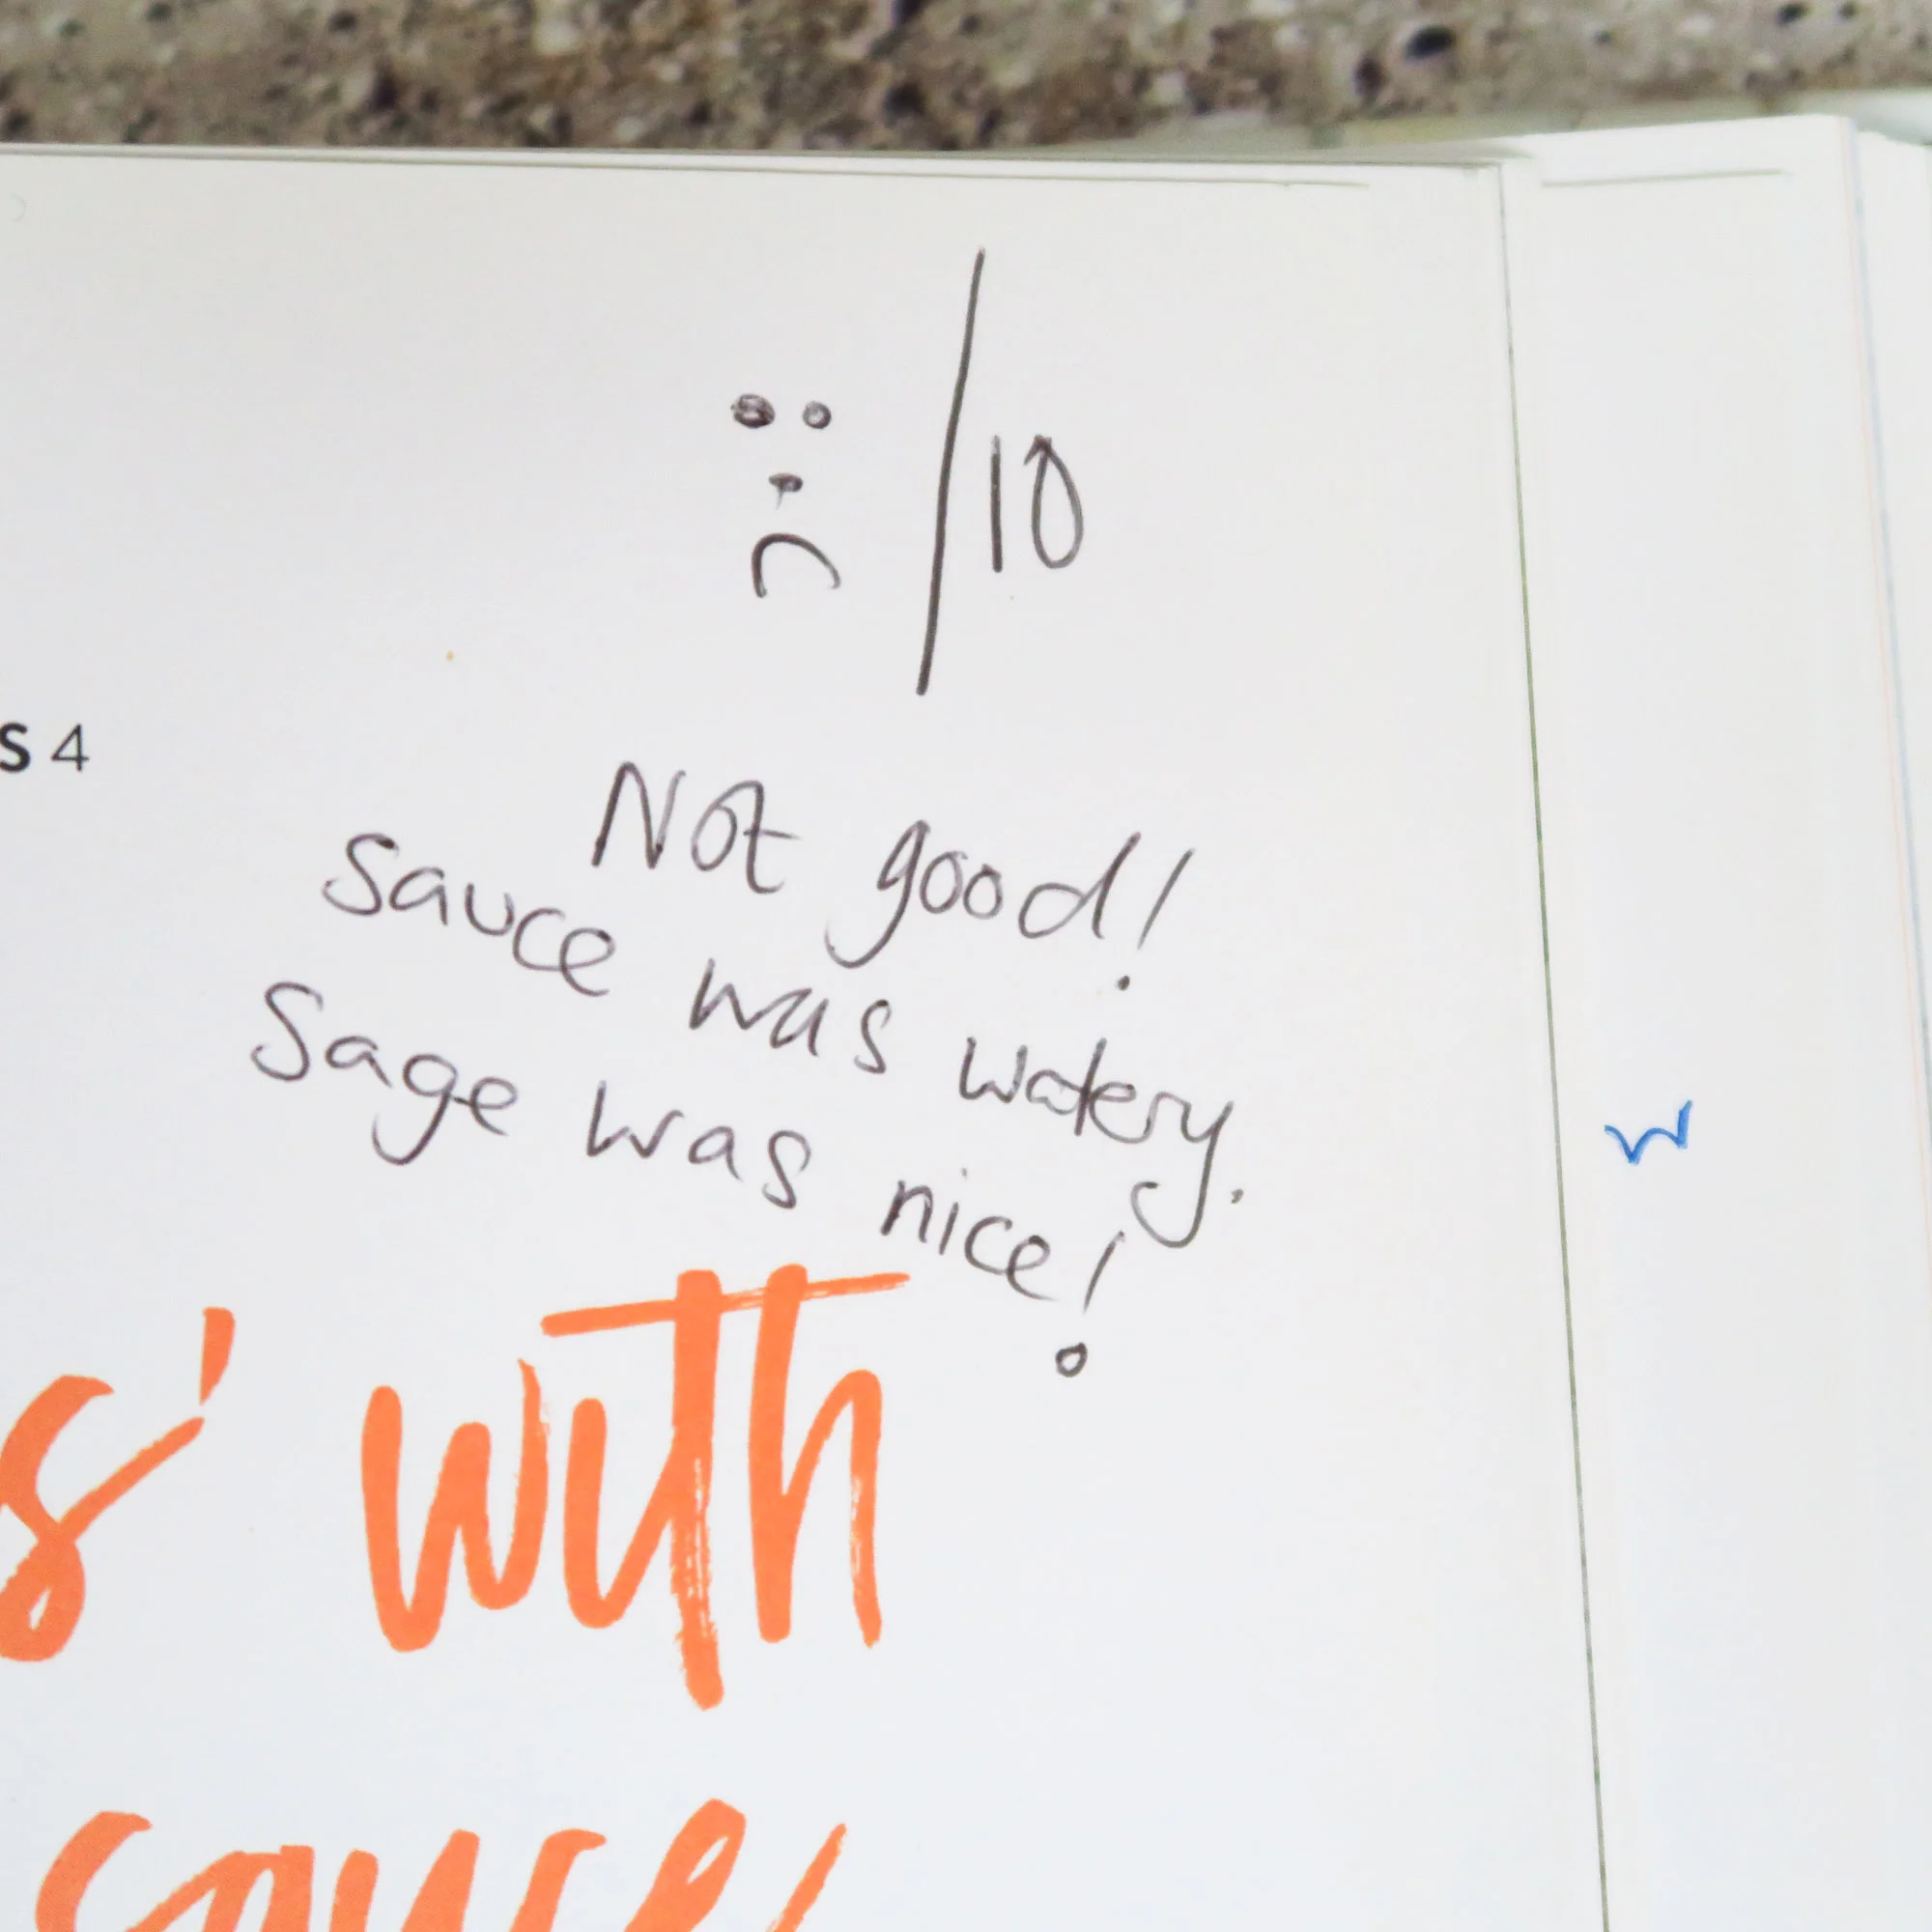 /10
S 4
Not good!
Sauce was watery.
Sage was nice!
s' with
sauce